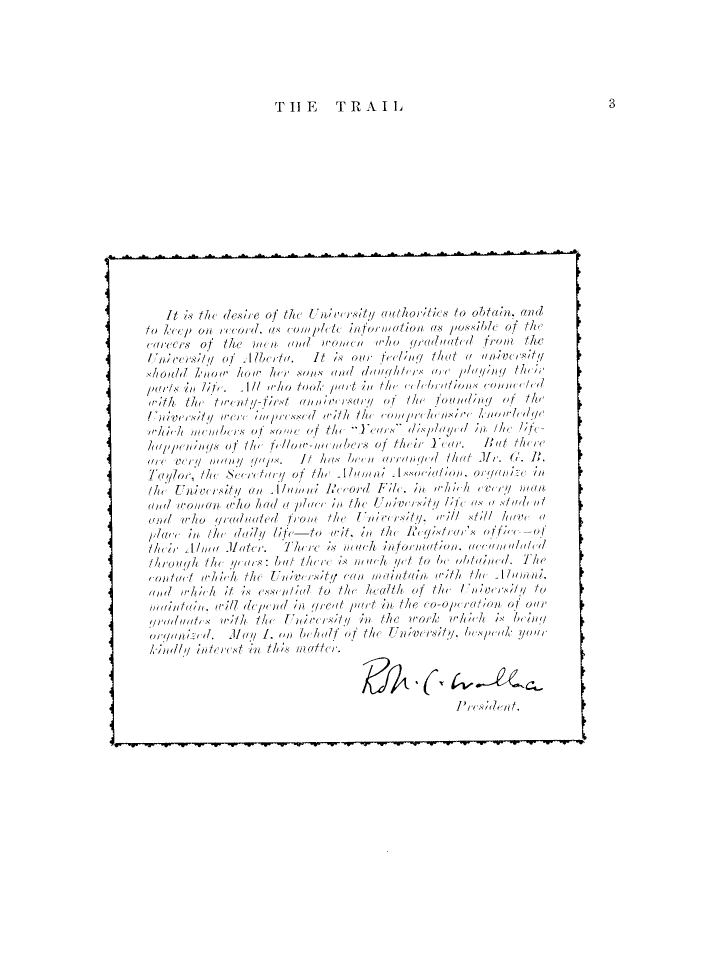 THE TRAIL 3
It is the desire of the University authorities to obtain, and
to keep on record, as complete information as possible of the
careers of the men and women who graduated from the
University of Alberta. It is our feeling that a university
should know how her sons and daughters are playing their
parts in life. All who took part in the celebrations connected
with the twenty-first anniversary of the founding of the
University were impressed with the comprehensive knowledge
which members of some of the "Years" displayed in the life-
happenings of the fellow-members of their Year. But there
are very many gaps. It has been arranged that Mr. G. B.
Taylor, the Secretary of the Alumni Association, organize in
the University an Alumni Record File, in which every man
and woman who had a place in the University life as a student
and who graduated from the University, will still have a
place in the daily life—to wit, in the Registrar's office—of
their Alma Mater. There is much information, accumulated
through the years; but there is much yet to be obtained. The
contact which the University can maintain with the Alumni,
and which it is essential to the health of the University to
maintain, will depend in great part in the co-operation of our
graduates with the University in the work which is being
organized. May I, on behalf of the University, bespeak your
kindly interest in this matter.
Robt. C. Wallace
President.